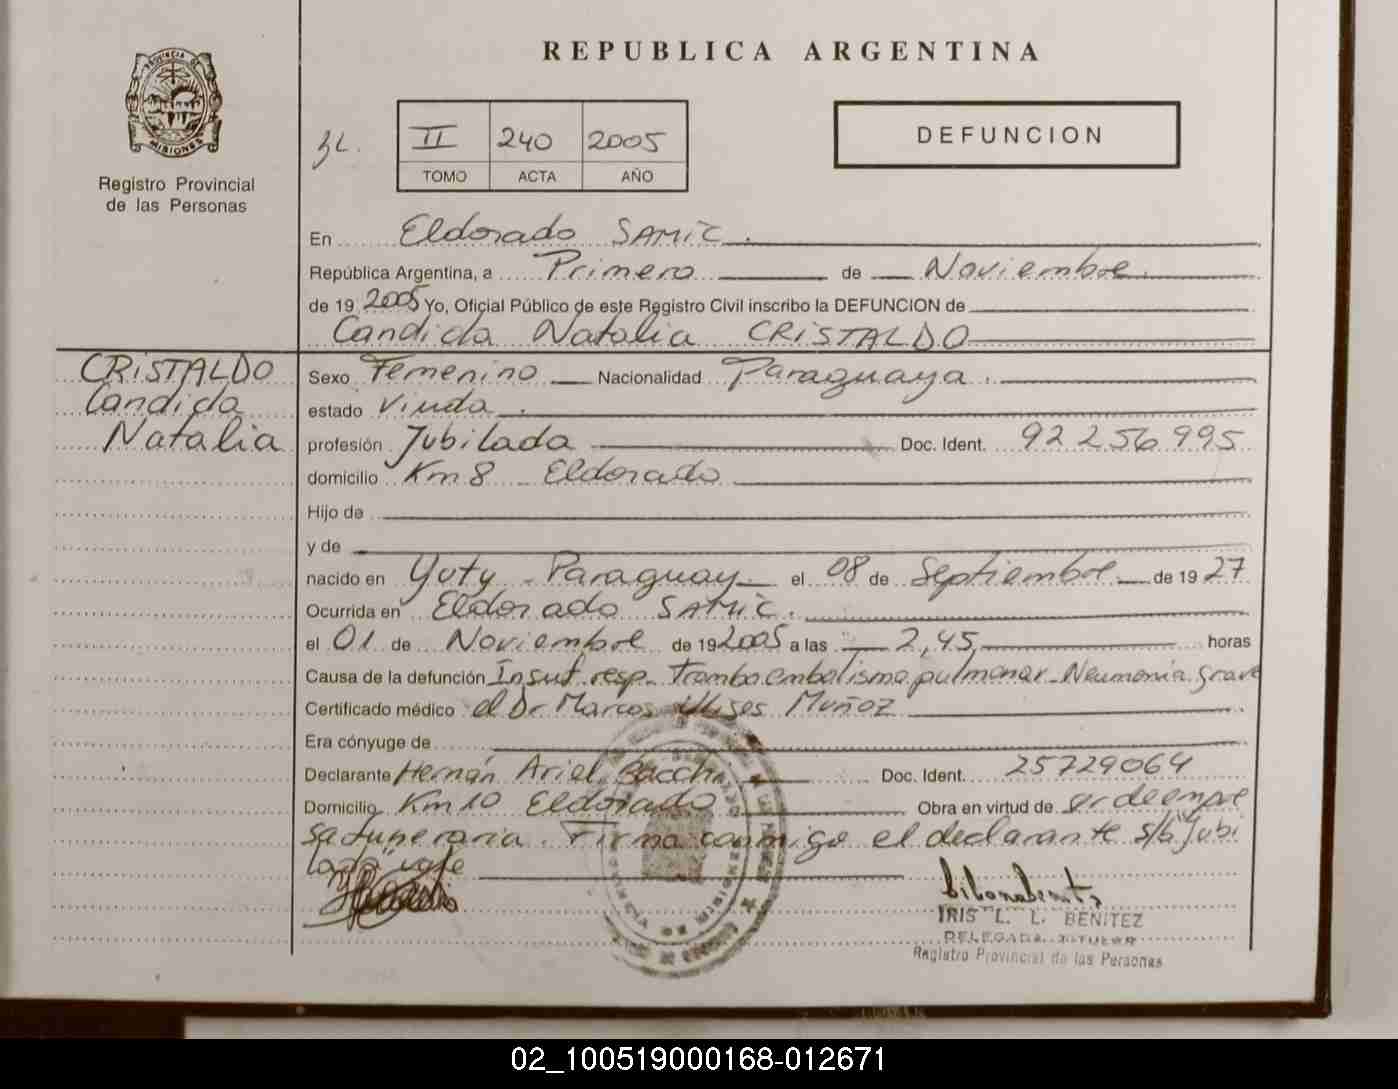 REPUBLICA ARGENTINA
PROVINCIA DE
MISIONES
Registro Provincial
de las Personas
II 240 2005
TOMO ACTA AÑO
DEFUNCION
En Eldorado SAMIC.
República Argentina, a Primero de Noviembre.
de 19 2005 Yo, Oficial Público de este Registro Civil inscribo la DEFUNCION de
Candida Natalia CRISTALDO
CRISTALDO
Candida
Natalia
Sexo Femenino Nacionalidad Paraguaya.
estado Viuda.
profesión Jubilada Doc. Ident. 92 256 995
domicilio Km 8 Eldorado
Hijo de
y de
nacido en Yuty - Paraguay el 08 de Septiembre de 19 27
Ocurrida en Eldorado SAMIC.
el 01 de Noviembre de 19 2005 a las 2,45 horas
Causa de la defunción Insuf. resp- Tromboembolismo pulmonar- Neumonia grave
Certificado médico el Dr. Marcos Ulises Muñoz
Era cónyuge de
Declarante Hernán Ariel Doc. Ident. 25729064
Domicilio Km 10 Eldorado Obra en virtud de ser de empre
sa funeraria. Firma conmigo el declarante s/b "jubi
lada" vale
IRIS L. L. BENITEZ
DELEGADA TITULAR
Registro Provincial de las Personas
02_100519000168-012671